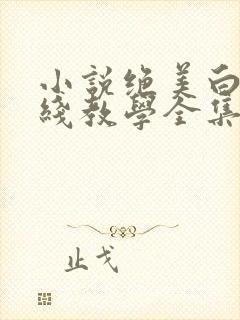 小説绝美白
綫教學全集
止戈